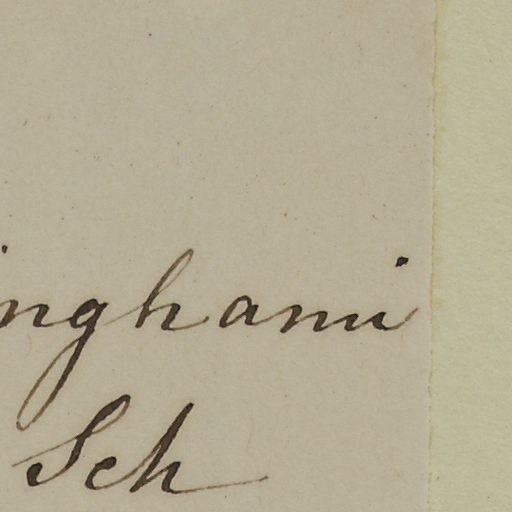 inghami
Sch